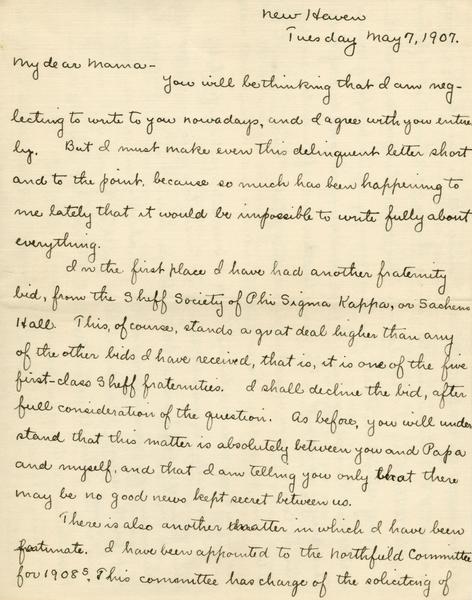 New Haven
Tuesday May 7, 1907.
My dear Mama -
You will be thinking that I am neg-
lecting to write to you nowadays, and I agree with you entire
ly. But I must make even this delinquent letter short
and to the point, because so much has been happening to
me lately that it would be impossible to write fully about
everything.
In the first place I have had another fraternity
bid, from the Sheff Society of Phi Sigma Kappa, or Sachem
Hall. This, of course, stands a great deal higher than any
of the other bids I have received, that is, it is one of the five
first-class Sheff fraternities. I shall decline the bid, after
full consideration of the question. As before, you will under
stand that this matter is absolutely between you and Papa
and myself, and that I am telling you only that there
may be no good news kept secret between us.
There is also another matter in which I have been
fortunate. I have been appointed to the Northfield Committee
for 1908 S. This committee has charge of the soliciting of